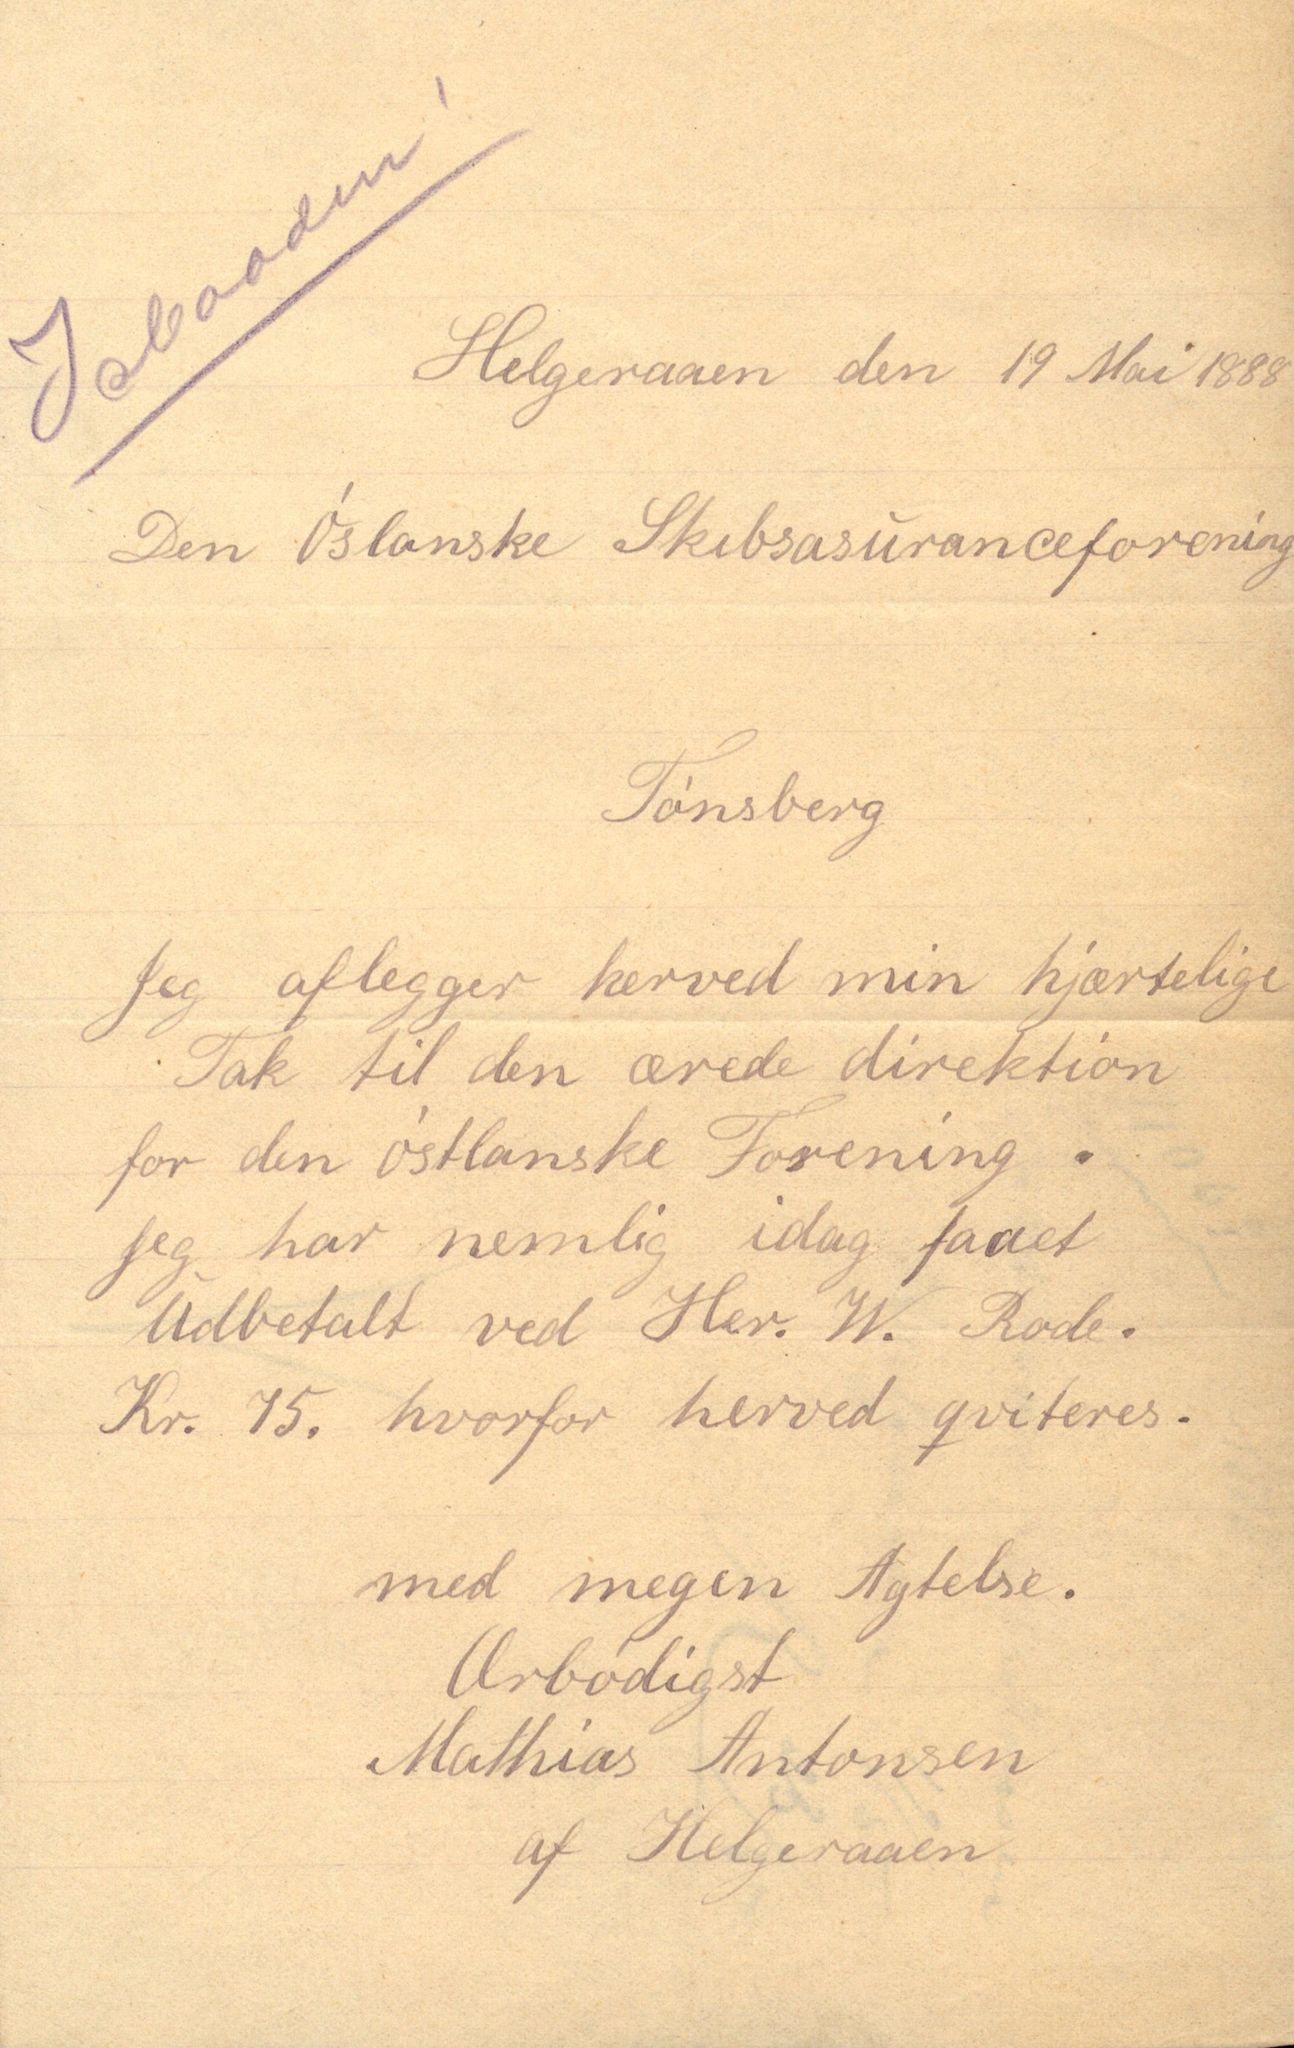 Helgeraaen den 19 Mai 1888
Den Óslanske Skibsasuranceforening
Tónsberg
Jeg aflegger herved min hjærtelige
Tak til den ærede direktion
for den óstlanske Forening.
Jeg har nemlig idag faaet
Udbetalt ved Her. W. Rode.
Kr. 75. hvorfor herved qviteres.
med megen Agtelse.
Ærbódigst
Mathias Antonsen
af Helgeraaen